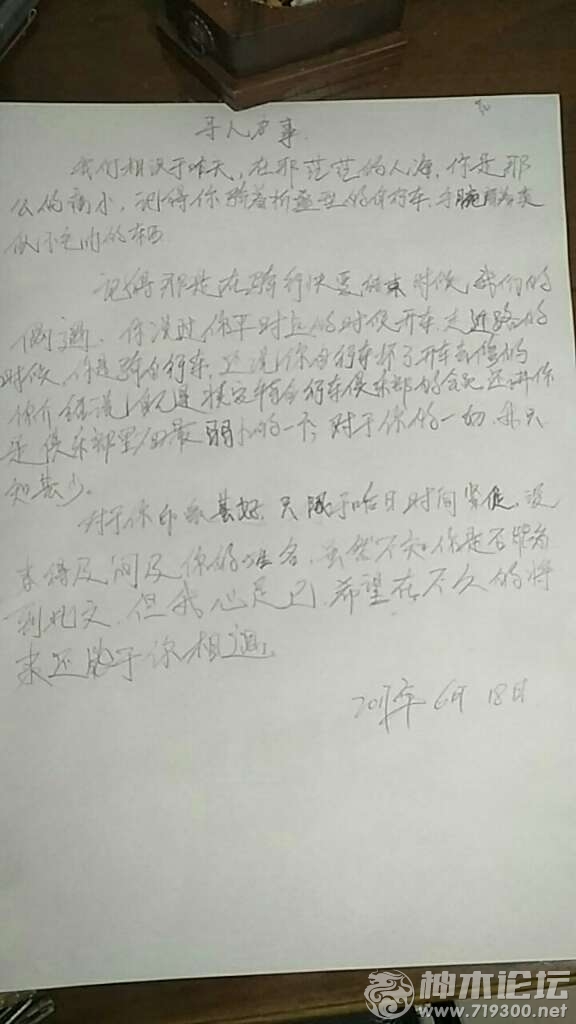 寻人启事
我们相识于昨天,在那茫茫的人海,你是那
么的渺小,记得你骑着折叠型的自行车,手腕带着类
似不包的东西
记得那是在骑行快要结束时候,我们的
偶遇。你说过你平时远的时候开车,走近路的
时候,你是骑自行车,又说你自行车坏了开车去修的
你介绍说,你是捷安特自行车俱乐部的会员还讲你
是俱乐部里/面最弱小的一个,对于你的一切,我只
知甚少。
对于你印象甚好,只限于昨日时间紧促,没
来得及问及你的姓名,虽然不知你是否能看
到此文,但我心足已,希望在不久的将
来还能于你相遇。
年 6月 18日
神木论坛
www.719300.net